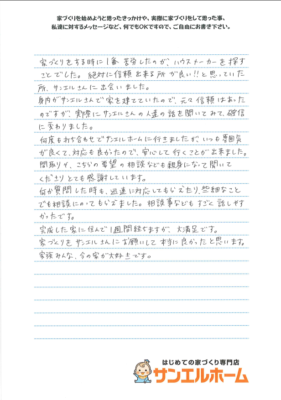 家づくりを始めようと思ったきっかけや、実際に家づくりをして思った事、
私達に対するメッセージなど、何でもOKですので、ご自由にお書き下さい。
家づくりをする時に1番苦労したのが、ハウスメーカーを探す
ことでした。絶対に信頼出来る所が良い!と思っていた
所、サンエルさんに出会いました。
身内がサンエルさんで家を建てていたので、元々信頼はあった
のですが、実際にサンエルさんの人達の話を聞いてみて、確信
に変わりました。
何度も打ち合せでサンエルホームに行きましたが、いつも雰囲気
が良くて、対応も良かったので、安心して行くことが出来ました。
間取りや、こちらの要望の相談なども親身になって聞いて
くださりとても感謝しています。
何か質問した時も、迅速に対応してもらえたり、些細なこと
でも相談にのってもらえました。相談事などもすごく話しやす
かったです。
完成した家に住んで1週間経ちますが、大満足です。
家づくりをサンエルさんにお願いして本当に良かったと思います。
家族みんな、今の家が大好きです。
はじめての家づくり専門店
サンエルホーム